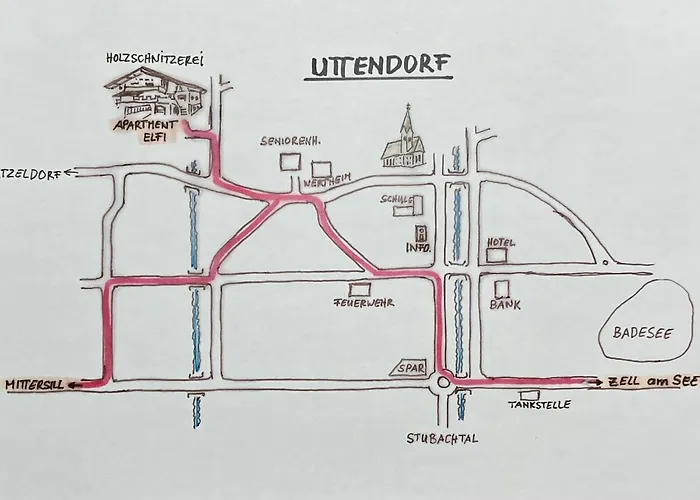 HOLZSCHNITZEREI
UTTENDORF
APARTMENT
ELFI
SENIORENH.
WERTHEIM
TZELDORF
SCHULE
INFO.
HOTEL
FEUERWEHR
BANK
BADESEE
SPAR
MITTERSILL
ZELL am SEE
TANKSTELLE
STUBACHTAL